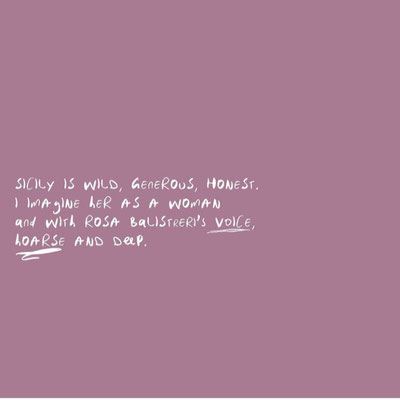 SICILY IS WILD, GENEROUS, HONEST.
I IMAGINE HER AS A WOMAN
and WITH ROSA BALISTRERI'S VOICE,
HOARSE AND DEEP.